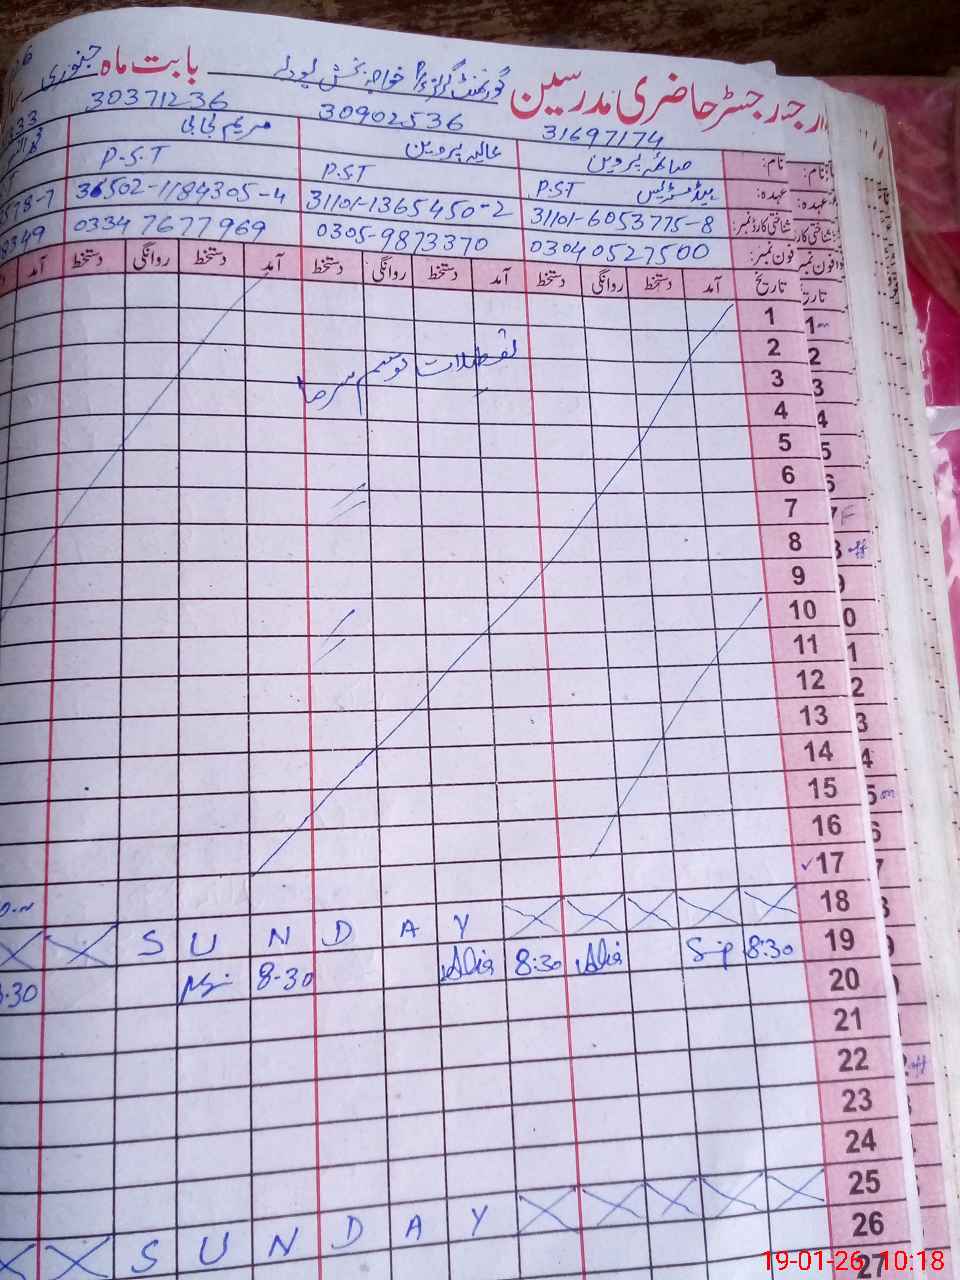 رجسٹر حاضری مدرسین گورنمنٹ گرلز خواجہ بخش بابت ماہ جنوری
31697174 30902536 30371236
نام: صائمہ پروین عالیہ پروین مریم بی بی
عہدہ: ہیڈ مسٹریس P.S.T P.S.T P.S.T
شناختی کارڈ نمبر: 31101-6053775-8 31101-1365450-2 36502-1184305-4
فون نمبر: 03040527500 0305-9873370 0334 7677969
تاریخ آمد دستخط روانگی دستخط آمد دستخط روانگی دستخط آمد دستخط روانگی دستخط آمد
1
2
تعطلات موسم سرما
3
4
5
6
7
8
9
10
11
12
13
14
15
16
17
18
S U N D A Y
19 8:30 8:30 8-30
20
21
22
23
24
25
S U N D A Y
26
27
19-01-26 10:18